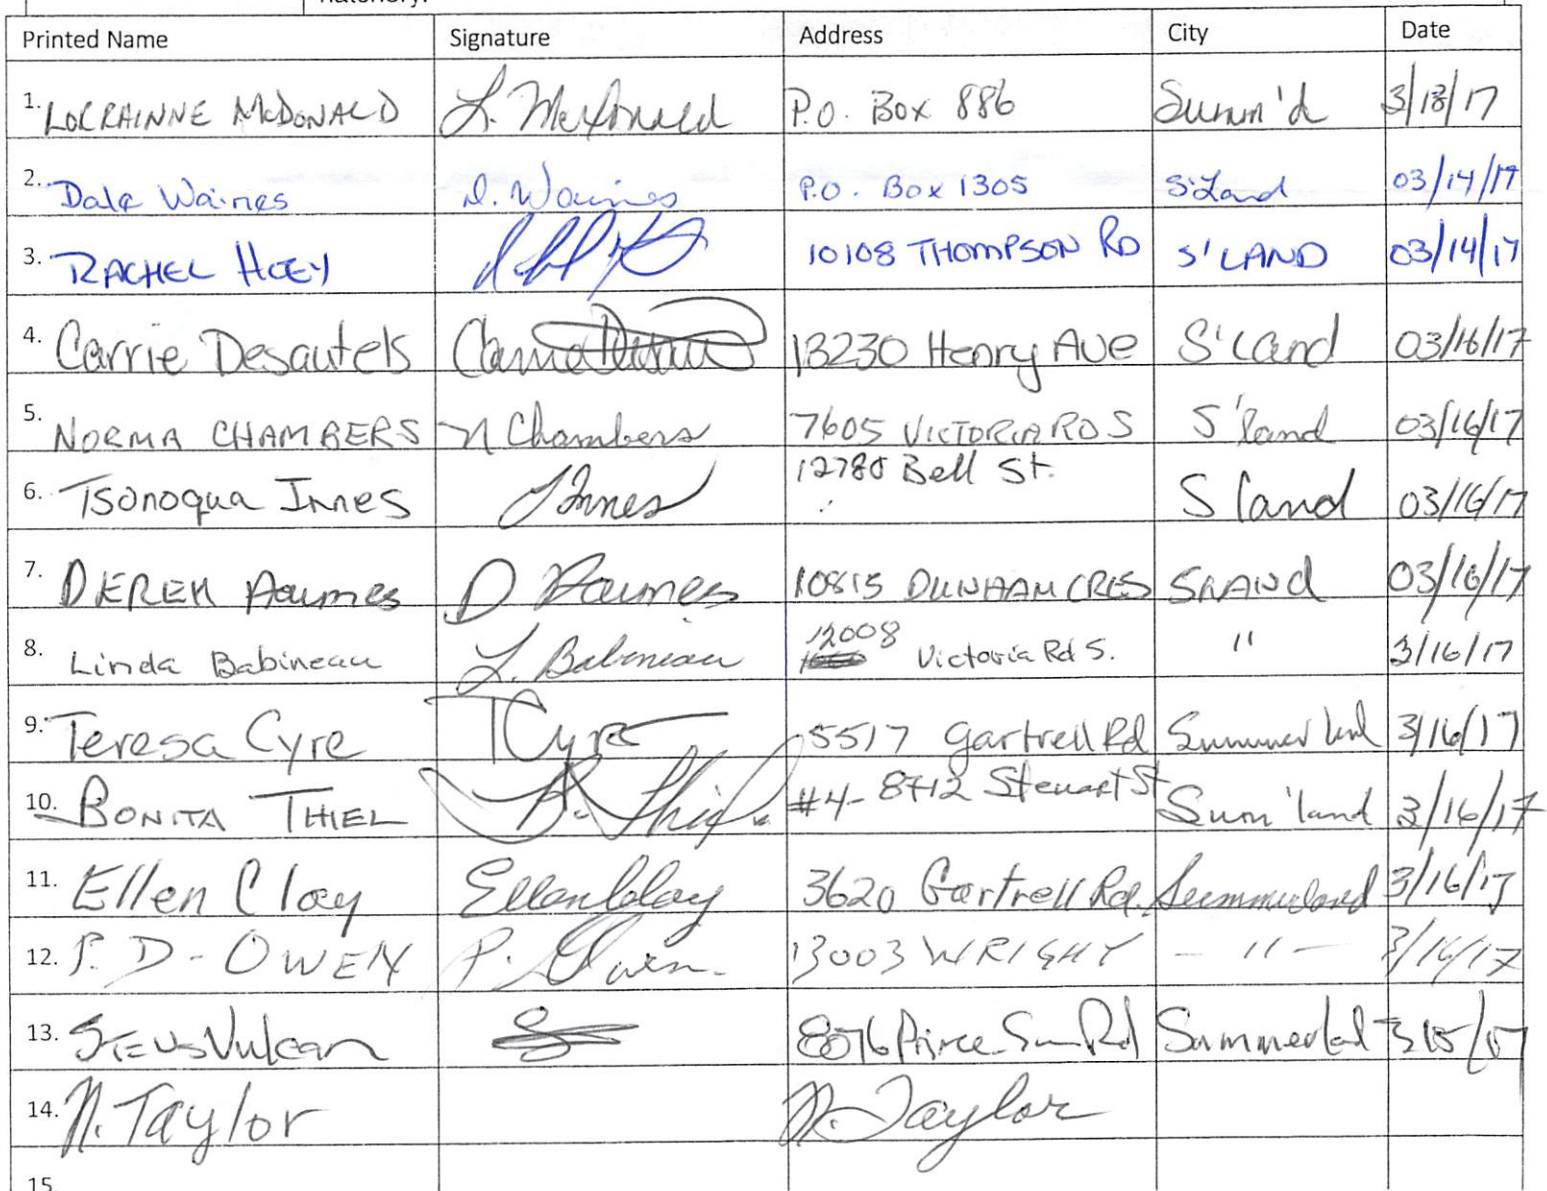 hatchery.
Printed Name Signature Address City Date
1. LORRAINNE McDONALD L. McDonald P.O. Box 886 Summ'd 3/13/17
2. Dale Waines D. Waines P.O. Box 1305 S'Land 03/14/17
3. RACHEL HOEY 10108 THOMPSON RD S'LAND 03/14/17
4. Carrie Desautels 13230 Henry Ave S'Land 03/16/17
5. NORMA CHAMBERS N Chambers 7605 VICTORIA RD S S'land 03/16/17
6. Tsonoqua Innes T Innes 12780 Bell St. S land 03/16/17
7. DEREK D 10815 DUNHAM CRES SLAND 03/16/17
8. Linda Babineau L. Babineau 12008 Victoria Rd S. " 3/16/17
9. Teresa Cyre T Cyre 5517 Gartrell Rd Summerland 3/16/17
10. BONITA THIEL B. Thiel #4- 8712 Stewart St Sum'land 3/16/17
11. Ellen Clay Ellen Clay 3620 Gartrell Rd. Summerland 3/16/17
12. P. D - OWEN P. Owen 13003 WRIGHT - " - 3/16/17
13. Vulcan Rd Summerland
14. N. Taylor N. Taylor
15.